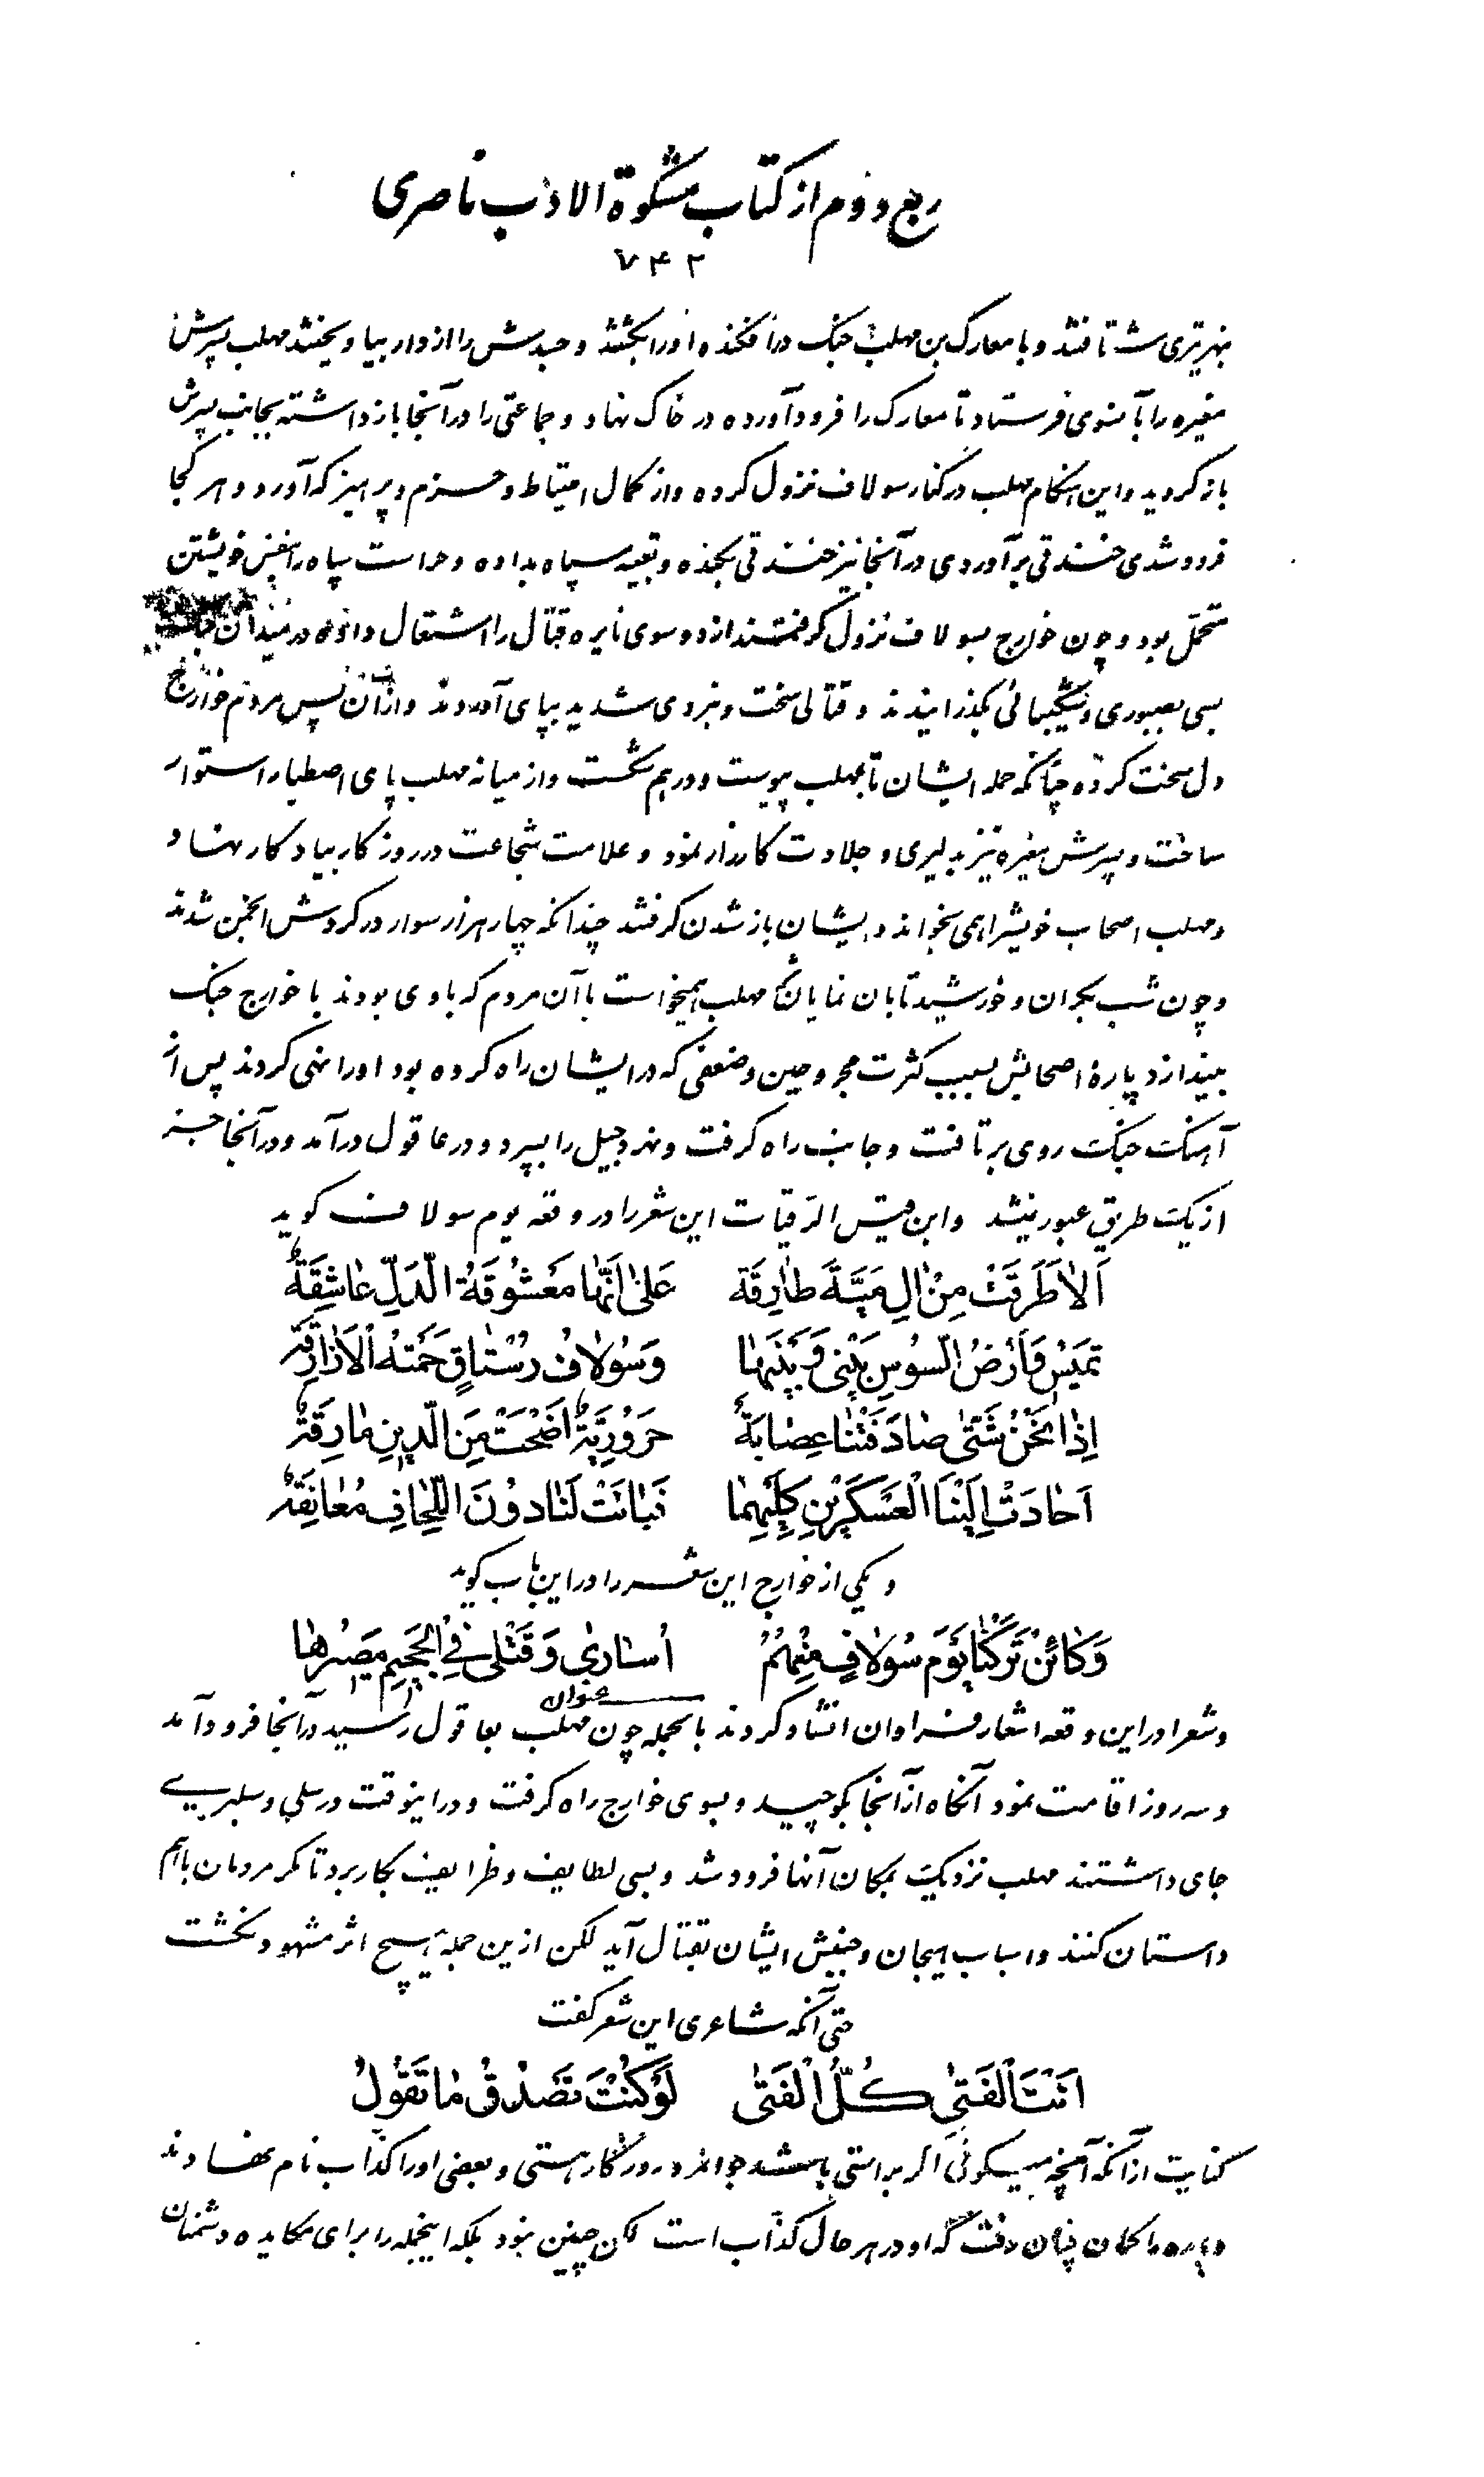 ربع دوم از کتاب مشکوة الادب ناصری
۷۴۲
بنهر تیری شتافتند و با معارک بن مهلب جنک درافکنده او را بکشتند و جسدش را از دار بیاویختند مهلب پسرش
مغیره را بآنسوی فرستاد تا معارک را فرود آورده در خاک نهاد و جماعتی را در آنجا بازداشته بجانب پدرش
باز کردید و این هنکام مهلب در کنار سولاف نزول کرده و از کمال احتیاط و حزم و پرهیز که آورد و هر کجا
فرود شدی خندقی برآوردی در آنجا نیز خندقی بکنده و تعبیه سپاه بداده و حراست سپاه را بنفس خویشتن
متحمل بود و چون خوارج بسولاف نزول کرفتند از دو سوی نایره قتال را اشتعال داده در میدان
بسی بصبوری و شکیبائی بکذرانیدند و قتالی سخت و نبردی شدید بپای آوردند و از آن پس مردم خوارج
دل سخت کرده چنانکه حمله ایشان تا بمهلب پیوست و درهم شکست و از میانه مهلب پای اصطبار استوار
ساخت و پسرش مغیره نیز بدلیری و جلادت کارزار نمود و علامت شجاعت در روز کار بیادکار نهاد
و مهلب اصحاب خویشرا همی بخواند و ایشان باز شدن کرفتند چندانکه چهار هزار سوار در کردش انجمن شدند
و چون شب بکران و خورشید تابان نمایان کشت مهلب همیخواست با آن مردم که با وی بودند با خوارج جنک
بیندازد پارۀ اصحابش بسبب کثرت مجروحین و ضعفی که در ایشان راه کرده بود او را نهی کردند پس از
آهنکت جنکت روی برتافت و جانب راه کرفت و نهر دجیل را بسپرد و در عاقول درآمد و در آنجا جز
از یکت طریق عبور نیشد و ابن قیس الرقیات این شعر را در وقعه یوم سولاف کوید
اَلاٰ طَرَقَتْ مِنْ اٰلِ مَيَّةَ طٰارِقَة عَلیٰ اَنَّهٰا مَعْشُوقَةُ الدَّلِّ عٰاشِقَةٌ
تَمَيْسُ وَاَرْضُ السُّوسِ بَيْنی وَبَيْنَهٰا وَسُوْلاٰفُ رُسْتٰاقٍ حَمَتْهُ الْاَزٰارِقَة
اِذٰا نَحْنُ شَتّیٰ صٰادَفَتْنٰا عِصٰابَةٌ حَرُوْرِيَّةٌ اَضْحَتْ مِنَ الدِّيْنِ مٰارِقَةٌ
اَجٰازَتْ اِلَيْنَا الْعَسْكَرَيْنِ كِلَيْهِمٰا فَبٰاتَتْ لَنٰا دُوْنَ اللِّحٰافِ مُعٰانِقَةٌ
و یکی از خوارج این شعر را در این باب کوید
وَكٰائِنْ تَرَكْنٰا يَوْمَ سُوْلاٰفٍ مِنْهُمُ اُسٰاریٰ وَقَتْلیٰ فِی الْجَحِيْمِ مَصِيْرُهٰا
عنوان
و شعرا در این وقعه اشعار فراوان انشاد کردند بالجمله چون مهلب بعاقول رسید در آنجا فرود آمد
و سه روز اقامت نمود آنکاه از آنجا بکوچید و بسوی خوارج راه کرفت و در اینوقت در سلی و سلبری
جای داشتند مهلب نزدیکت بمکان آنها فرود شد و بسی لطایف و ظرایف بکار برد تا مکر مردمان باهم
داستان کنند و اسباب هیجان و جنبش ایشان بقتال آید لکن از ین جمله هیچ اثر مشهود نکشت
حتی آنکه شاعری این شعر کفت
اَنْتَ الْفَتیٰ كُلُّ الْفَتیٰ لَوْ كُنْتَ تَصْدُقُ مٰا تَقُوْلُ
کنایت از آنکه آنچه میکوئی اکر براستی باشد جوانمرد روزکار هستی و بعضی او را کذاب نام نهادند
و پاره را کمان چنان رفت که او در هر حال کذاب است لکن چنین نبود بلکه اینجمله را برای مکایده دشمنان